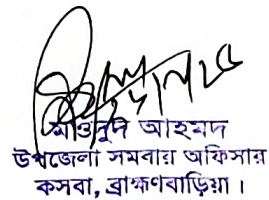 মাওদুদ আহমদ
উপজেলা সমবায় অফিসার
কসবা, ব্রাহ্মণবাড়িয়া ।